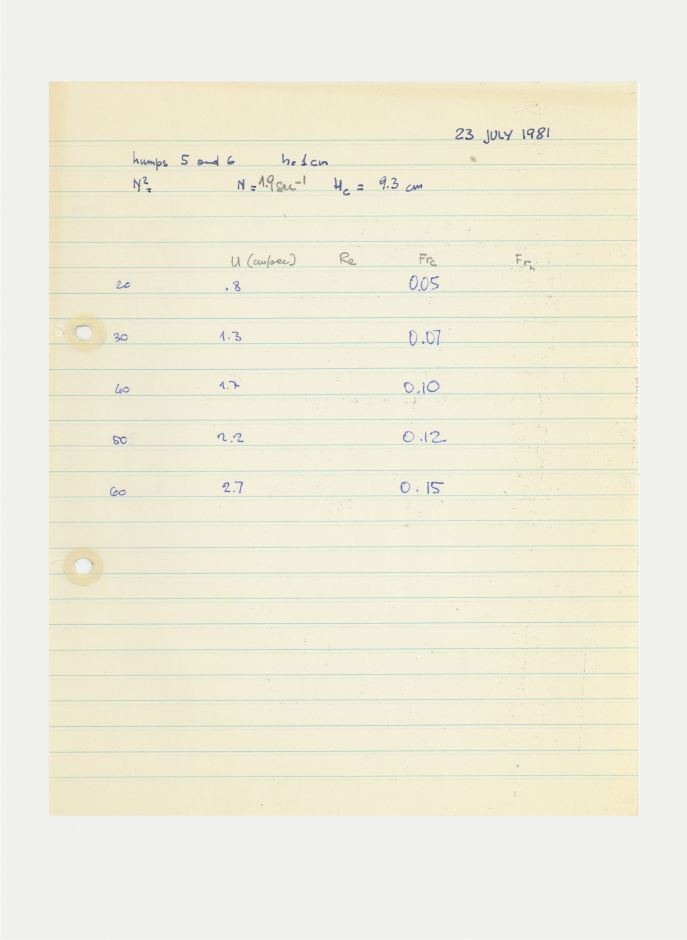 23 JULY 1981
humps 5 and 6 h=1cm
N²= N=1.9sec⁻¹ Hc = 9.3 cm
U (cm/sec) Re Frc Frh
20 .8 0.05
30 1.3 0.07
40 1.7 0.10
50 2.2 0.12
60 2.7 0.15